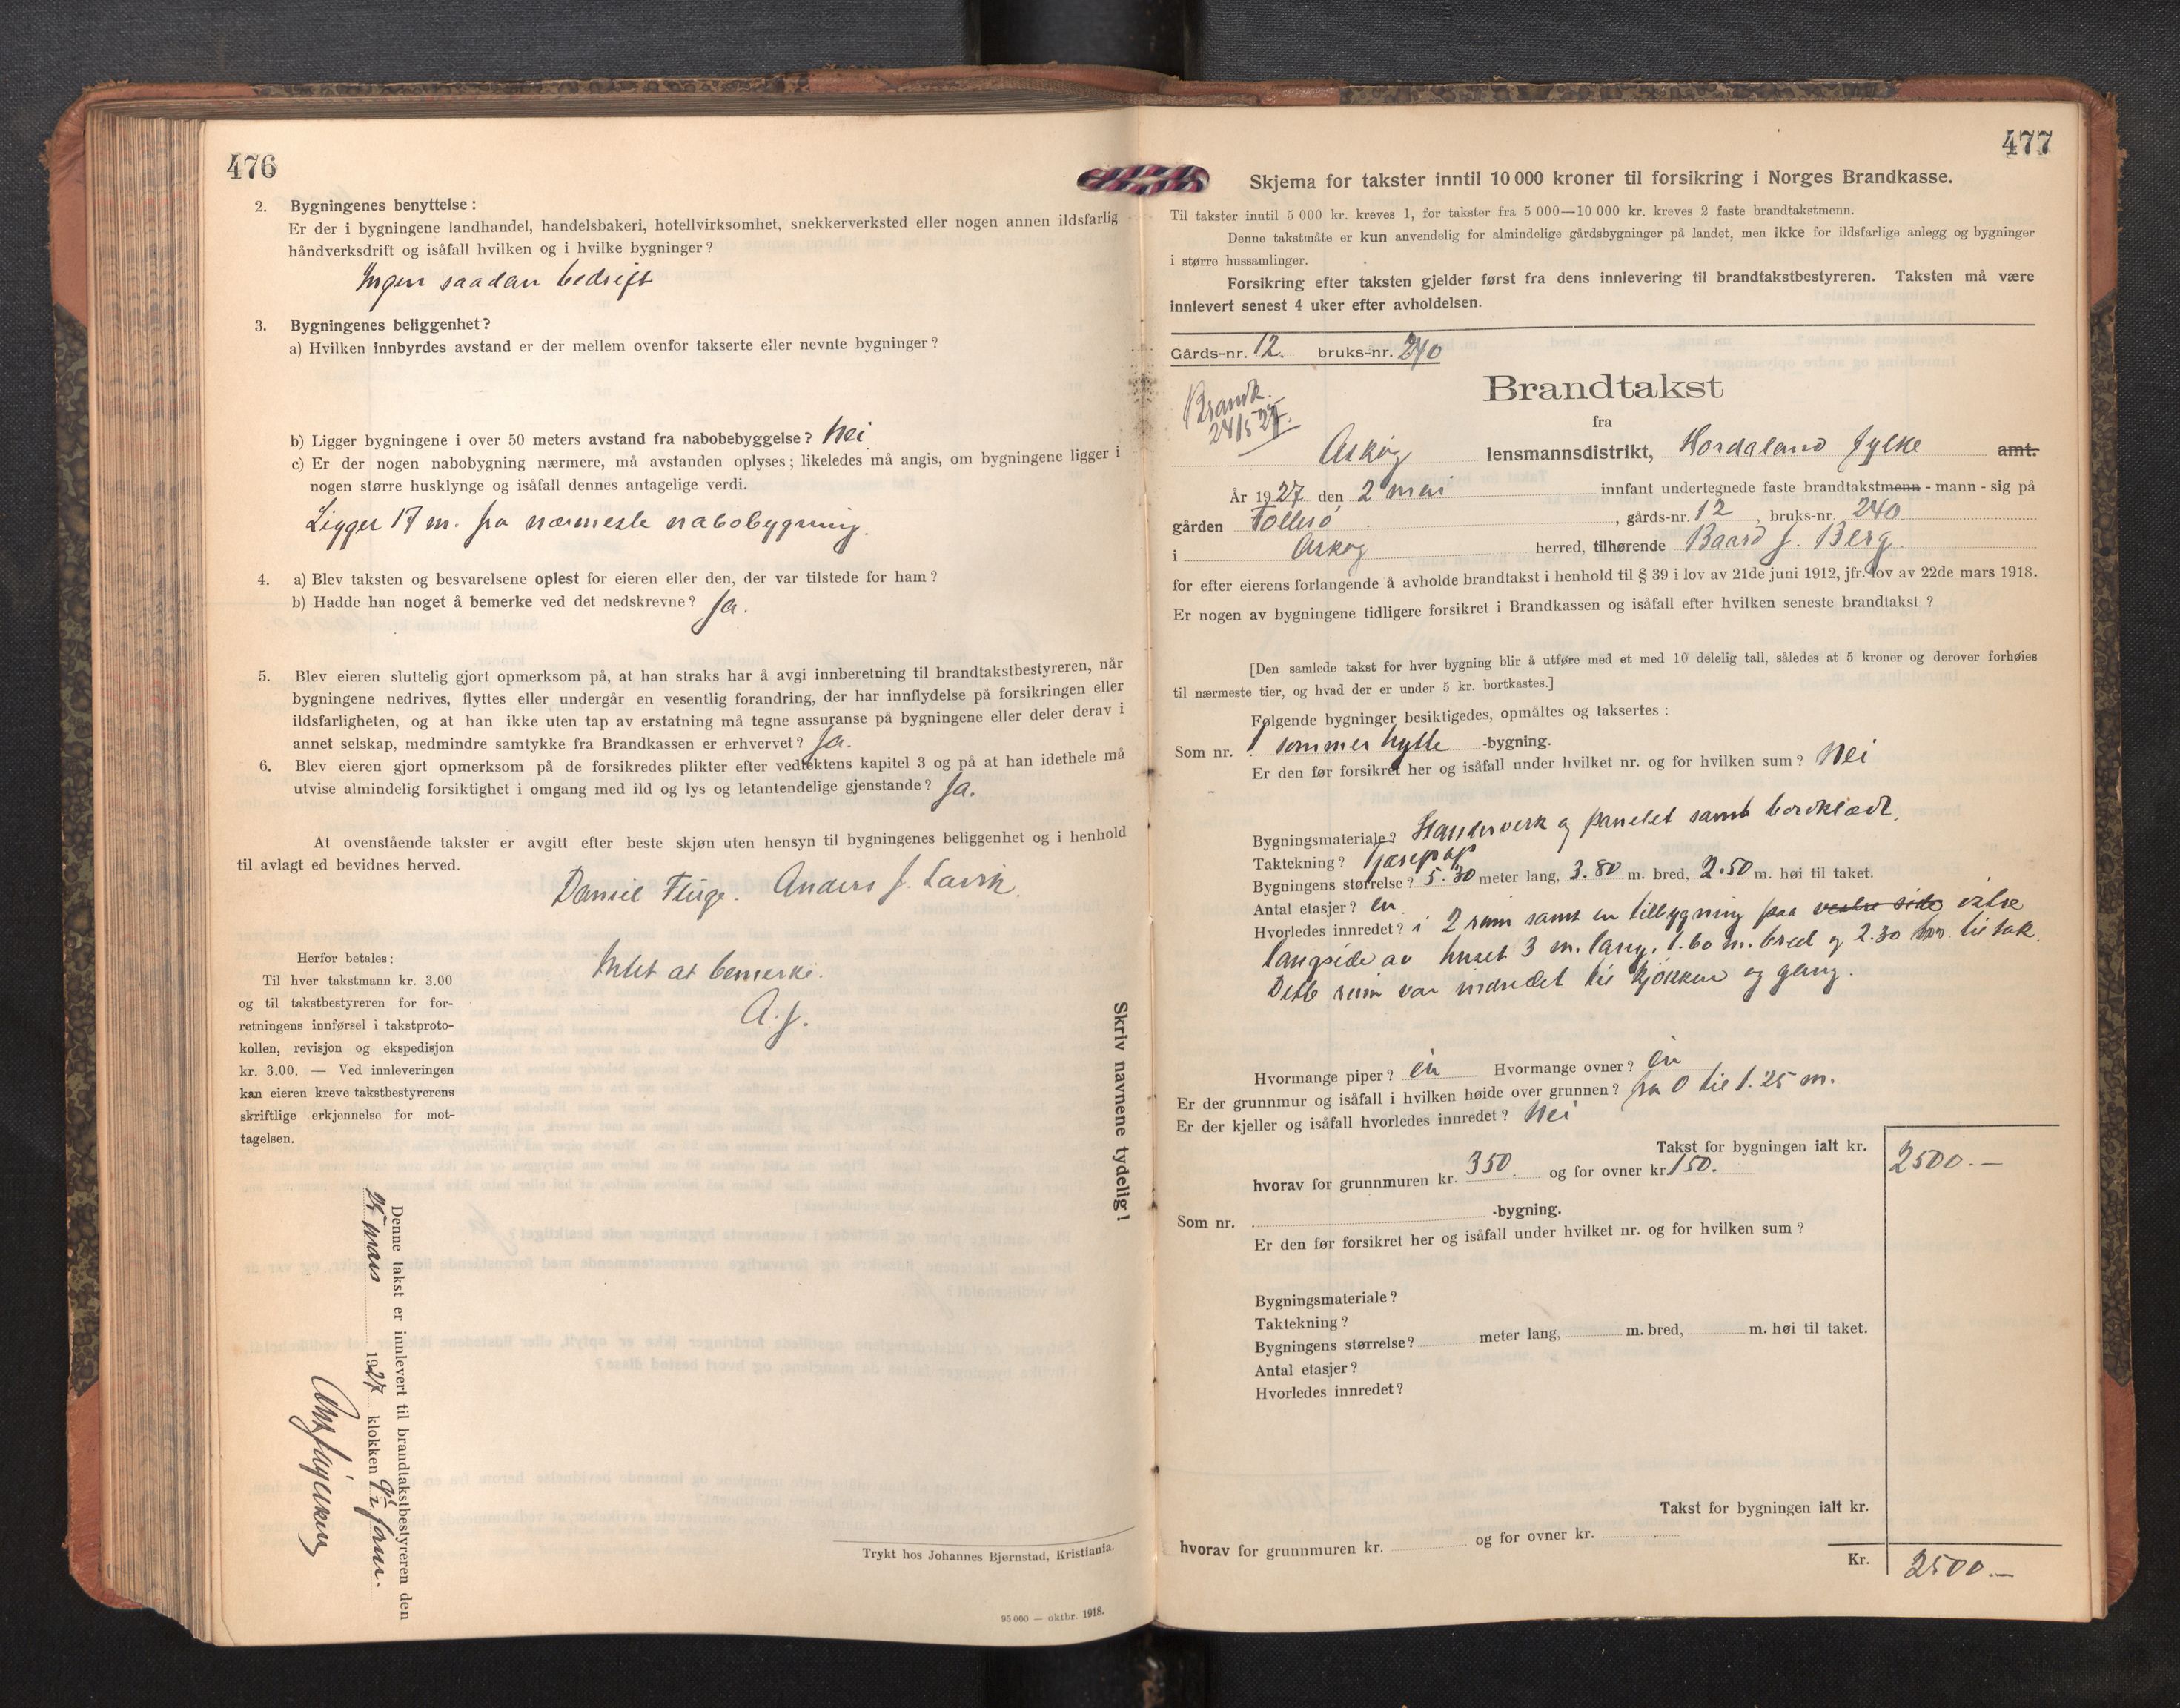 476
2. Bygningenes benyttelse:
Er der i bygningene landhandel, handelsbakeri, hotellvirksomhet, snekkerverksted eller nogen annen ildsfarlig
håndverksdrift og isåfall hvilken og i hvilke bygninger?
Ingen saadan bedrift
3. Bygningenes beliggenhet?
a) Hvilken innbyrdes avstand er der mellem ovenfor takserte eller nevnte bygninger?
b) Ligger bygningene i over 50 meters avstand fra nabobebyggelse? Nei
c) Er der nogen nabobygning nærmere, må avstanden oplyses; likeledes må angis, om bygningene ligger i
nogen større husklynge og isåfall dennes antagelige verdi.
Ligger 17 m. fra nærmeste nabobygning.
4. a) Blev taksten og besvarelsene oplest for eieren eller den, der var tilstede for ham?
b) Hadde han noget å bemerke ved det nedskrevne? Ja.
5. Blev eieren sluttelig gjort opmerksom på, at han straks har å avgi innberetning til brandtakstbestyreren, når
bygningene nedrives, flyttes eller undergår en vesentlig forandring, der har innflydelse på forsikringen eller
ildsfarligheten, og at han ikke uten tap av erstatning må tegne assuranse på bygningene eller deler derav i
annet selskap, medmindre samtykke fra Brandkassen er erhvervet? Ja.
6. Blev eieren gjort opmerksom på de forsikredes plikter efter vedtektens kapitel 3 og på at han idethele må
utvise almindelig forsiktighet i omgang med ild og lys og letantendelige gjenstande? Ja.
At ovenstående takster er avgitt efter beste skjøn uten hensyn til bygningenes beliggenhet og i henhold
til avlagt ed bevidnes herved.
Daniel Fluge. Anders J. Lavik.
Intet at bemerke.
A. J.
Herfor betales:
Til hver takstmann kr. 3.00
og til takstbestyreren for for-
retningens innførsel i takstproto-
kollen, revisjon og ekspedisjon
kr. 3.00. — Ved innleveringen
kan eieren kreve takstbestyrerens
skriftlige erkjennelse for mot-
tagelsen.
Skriv navnene tydelig!
Denne takst er innlevert til brandtakstbestyreren den
25 mars 1927 klokken 9½ form.
Trykt hos Johannes Bjørnstad, Kristiania.
95 000 — oktbr. 1918.
477
Skjema for takster inntil 10 000 kroner til forsikring i Norges Brandkasse.
Til takster inntil 5 000 kr. kreves 1, for takster fra 5 000—10 000 kr. kreves 2 faste brandtakstmenn.
Denne takstmåte er kun anvendelig for almindelige gårdsbygninger på landet, men ikke for ildsfarlige anlegg og bygninger
i større hussamlinger.
Forsikring efter taksten gjelder først fra dens innlevering til brandtakstbestyreren. Taksten må være
innlevert senest 4 uker efter avholdelsen.
Gårds-nr. 12. bruks-nr. 240
Brandk.
24/5 27.
Brandtakst
fra
Askøy lensmannsdistrikt, Hordaland fylke amt.
År 1927 den 2 mai innfant undertegnede faste brandtakstmenn - mann - sig på
gården Follesø, gårds-nr. 12, bruks-nr. 240.
i Askøy herred, tilhørende Baard J. Berg.
for efter eierens forlangende å avholde brandtakst i henhold til § 39 i lov av 21de juni 1912, jfr. lov av 22de mars 1918.
Er nogen av bygningene tidligere forsikret i Brandkassen og isåfall efter hvilken seneste brandtakst?
[Den samlede takst for hver bygning blir å utføre med et med 10 delelig tall, således at 5 kroner og derover forhøies
til nærmeste tier, og hvad der er under 5 kr. bortkastes.]
Følgende bygninger besiktigedes, opmåltes og taksertes:
Som nr. 1 sommer hytte -bygning.
Er den før forsikret her og isåfall under hvilket nr. og for hvilken sum? Nei
Bygningsmateriale? Standerverk og panelet samt bordklædt.
Taktekning? Tjærepap
Bygningens størrelse? 5.30 meter lang, 3.80 m. bred, 2.50 m. høi til taket.
Antal etasjer? en.
Hvorledes innredet? i 2 rum samt en tilbygning paa vestre side østre
langside av huset 3 m. lang, 1.60 m. bred og 2.30 til tak.
Dette rum var indredet til kjøkken og gang.
Hvormange piper? en Hvormange ovner? en
Er der grunnmur og isåfall i hvilken høide over grunnen? fra 0 til 1.25 m.
Er der kjeller og isåfall hvorledes innredet? Nei
Takst for bygningen ialt kr. 2500.—
hvorav for grunnmuren kr. 350. og for ovner kr. 150.
Som nr. -bygning.
Er den før forsikret her og isåfall under hvilket nr. og for hvilken sum?
Bygningsmateriale?
Taktekning?
Bygningens størrelse? meter lang, m. bred, m. høi til taket.
Antal etasjer?
Hvorledes innredet?
Takst for bygningen ialt kr.
hvorav for grunnmuren kr. og for ovner kr.
Kr. 2500.—